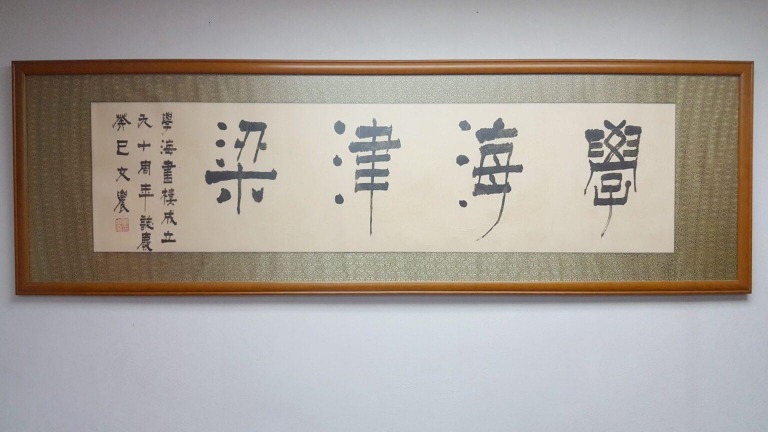 學海津梁
學海書樓成立
九十周年誌慶
癸巳文農